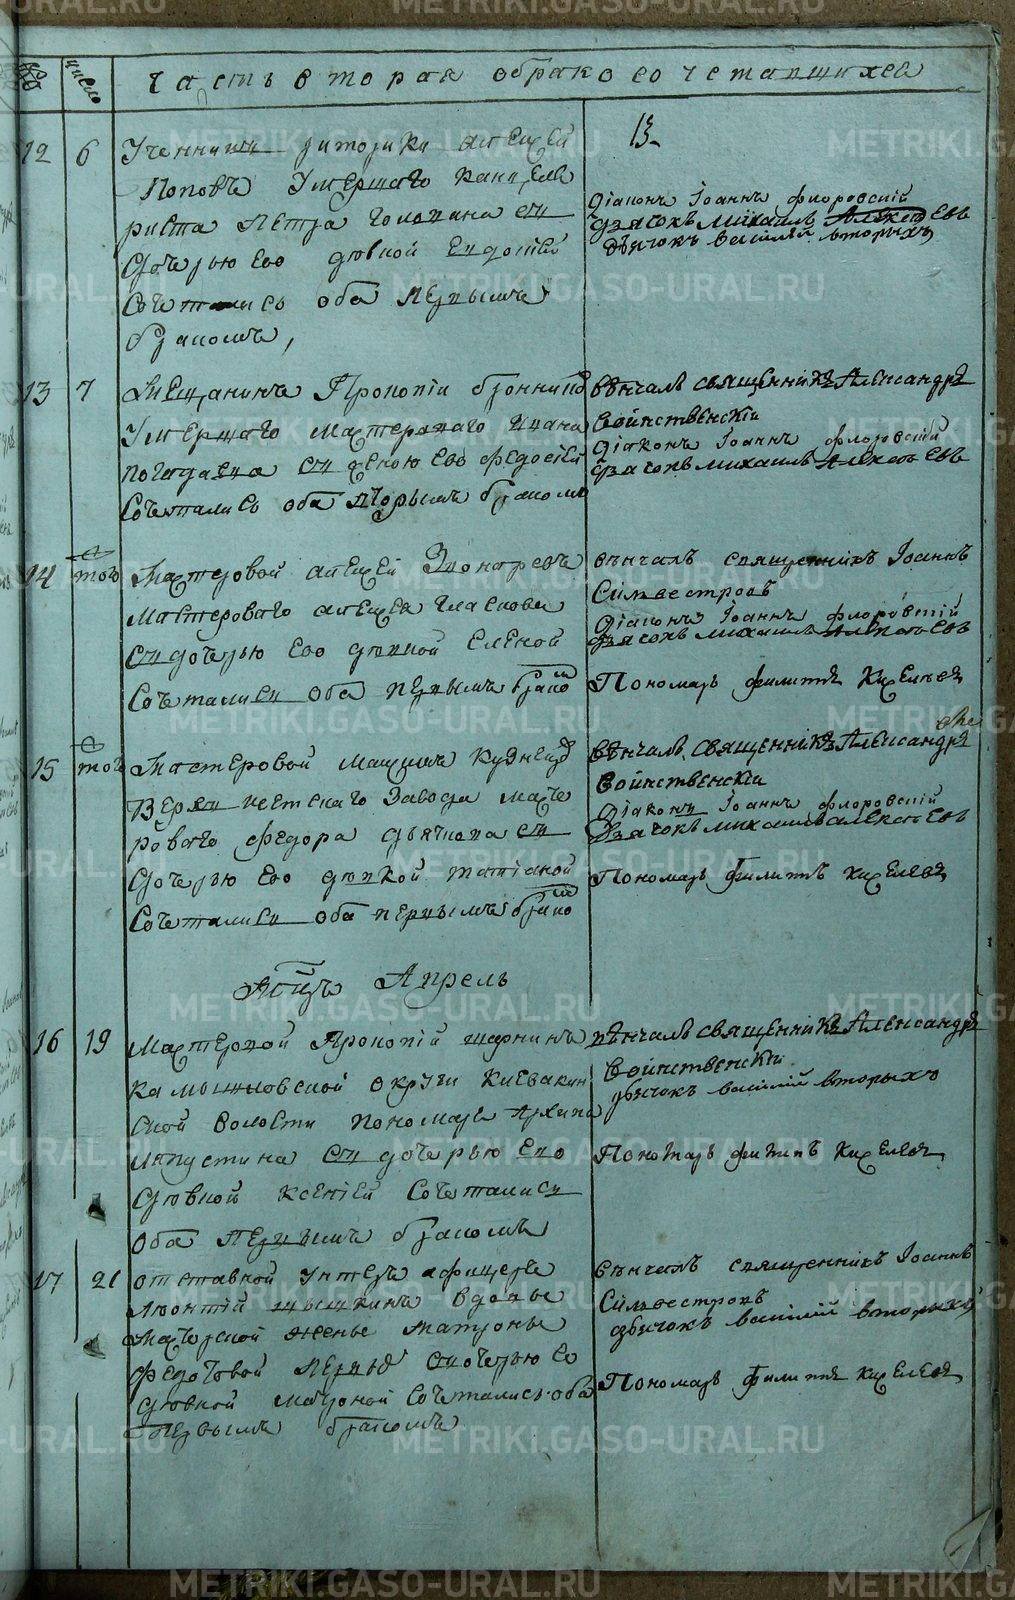 число
Часть вторая о бракосочетавшихся
12
6
Ученикъ риторики Алексей
Поповъ умершаго канцеля
риста Петра
дочерью ево девкой
сочетались оба первымъ
бракомъ,
13
Діаконъ Іоаннъ Флоровскій
дьячокъ Михаилъ Алексеевъ
дьячокъ Василій Вторыхъ
13
7
Мещанинъ Прокопіи
умершаго мастероваго Ивана
женою ево Федосіей
сочетались оба вторымъ бракомъ
Вѣнчалъ священникъ Александръ
Воинственскіи
Діаконъ Іоаннъ Флоровскій
дьячокъ Михаилъ Алексеевъ
14
тогож
Мастеровой Алексей Зонаревъ
мастероваго Алексея
дочерью ево девкой Еленой
сочетались оба первымъ брако
Вѣнчалъ священникъ Іоаннъ
Сильвестровъ
Діаконъ Іоаннъ Флоровскій
дьячокъ Михаилъ Алексеевъ
Пономарь Филиппъ Киселевъ
15
тогож
Мастеровой Максимъ Кузнецовъ
Верхъ Исетскаго завода масте
роваго Федора Дьячкова съ
дочерью ево девкой Татіаной
сочетались оба первымъ брако
Вѣнчалъ священникъ Александръ
Воинственскіи
Діаконъ Іоаннъ Флоровскій
дьячокъ Михаилъ Алексеевъ
Пономарь Филиппъ Киселевъ
Мсцъ Апрель
16
19
Мастеровой Прокопій
Камышловской округи Клевакин
ской волости пономаря Архипа
Лапустина съ дочерью ево
девкой Ксеніей сочетались
оба первымъ бракомъ
Вѣнчалъ священникъ Александръ
Воинственскіи
дьячокъ Василій Вторыхъ
Пономарь Филипъ Киселевъ
17
21
Отставной унтеръ афицеръ
Леонтій вдовы
мастерской жены Матроны
Федотовой дочерью ее
девкой Матроной сочетались оба
первымъ бракомъ
Вѣнчалъ священникъ Іоаннъ
Сильвестровъ
дьячокъ Василій Вторыхъ
Пономарь Филиппъ Киселевъ
METRIKI.GASO-URAL.RU